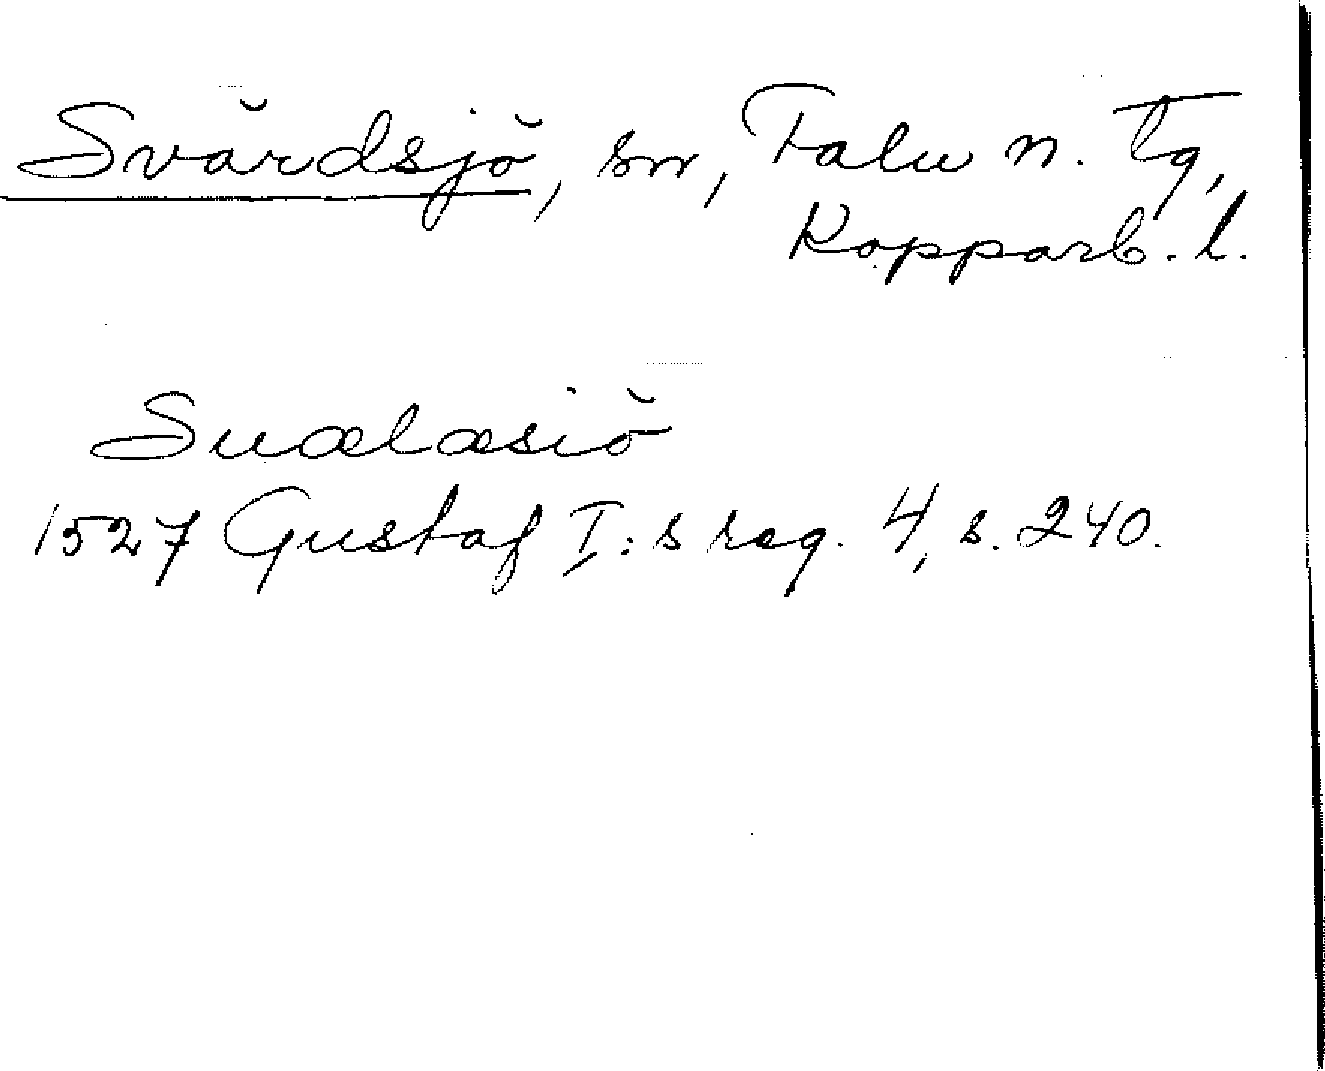 Svärdsjö, sn, Falu n. tg,
Kopparb. l.
Suælæsiö
1527 Gustaf I:s reg. 4, s. 240.